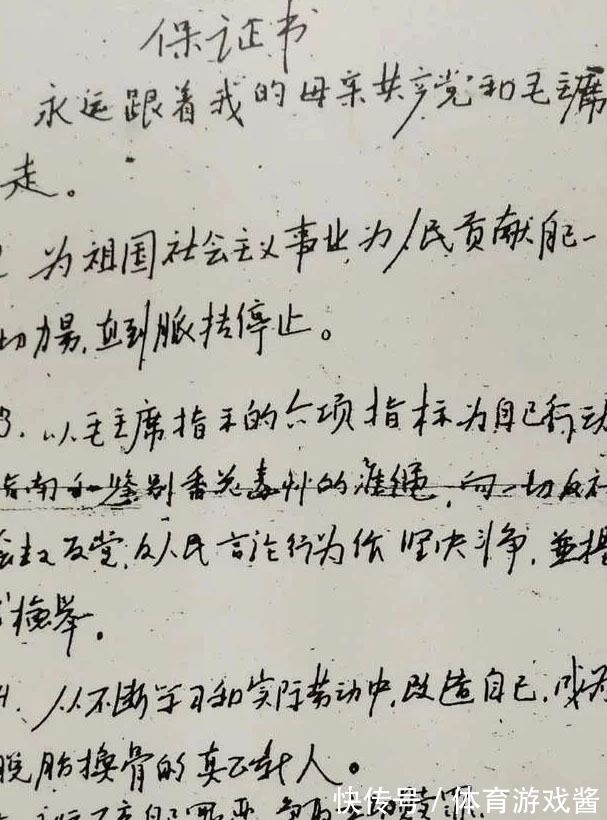 保证书
永远跟着我的母亲共产党和毛主席
走。
为祖国社会主义事业,为人民贡献自己一
切力量,直到脉搏停止。
3. 以毛主席指示的六项指标为自己行动
指南和鉴别香花毒草的准绳,向一切反社
会主义反党,反人民言论行为作坚决斗争,并
检举。
4. 从不断学习和实际劳动中,改造自己,成为
脱胎换骨的真正
人。
快传号/体育游戏酱